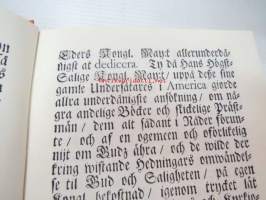 Eders Kongl. Mayt allerunderdå-
nigst at dedicera. Ty då Hans Högst-
Salige Kongl. Mayt/ uppå desse sine
gamle Undersåtares i America giorde
allra underdånigste ansökning/ om nå-
gra andelige Böcker och skickelige Präst-
män/ dem alt sådant i Nåder förun-
te/ och af en ogemeen och oförlikelig
nijt om Gudz ähra/ och de wilde der
kring wistande Hedningars omwändel-
se til Gud och Saligheten/ på egen
Kongl. bekostnad/ igenom trycket låt